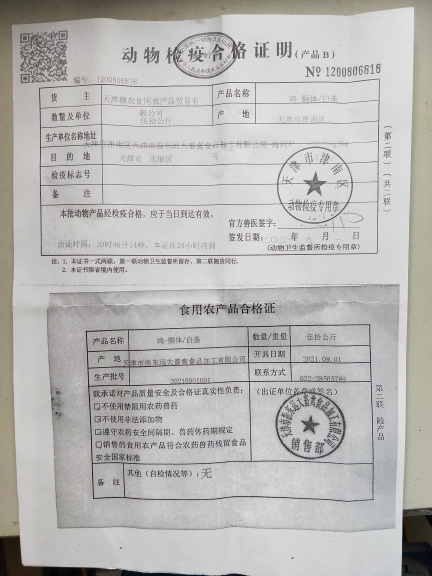 动物检疫合格证明(产品B)
编号: 1200806818
№ 1200806818
货 主 天津穗农食用农产品贸易有限公司 产品名称 鸡-胴体/白条
数量及单位 伍拾公斤 产 地 天津市津南区
生产单位名称地址
目 的 地 天津市 北辰区
检疫标志号
备 注
本批动物产品经检疫合格,应于当日到达有效。
官方兽医签字:
出证时间: 10时46分14秒,本证在24小时内到
签发日期: 年 月 日
(动物卫生监督所检疫专用章)
天津市津南区
动物检疫专用章
注: 1. 本证书一式两联,第一联动物卫生监督所留存,第二联随货同行。
2. 本证书限省境内使用。
第二联
(共二联)
食用农产品合格证
产品名称 鸡-胴体/白条 数量/重量 伍拾公斤
产 地 天津市振东远大畜禽食品加工有限公司 开具日期 2021.09.01
生产批号 20210901001 联系方式
我承诺对产品质量安全及合格证真实性负责:
(出证单位盖章或签名)
□不使用禁限用农药兽药
□不使用非法添加物
□遵守农药安全间隔期、兽药休药期规定
□销售的食用农产品符合农药兽药残留食品安全国家标准
天津市振东远大畜禽食品加工有限公司
销售部
备 注 其他(自检情况等): 无
第二联 随产品